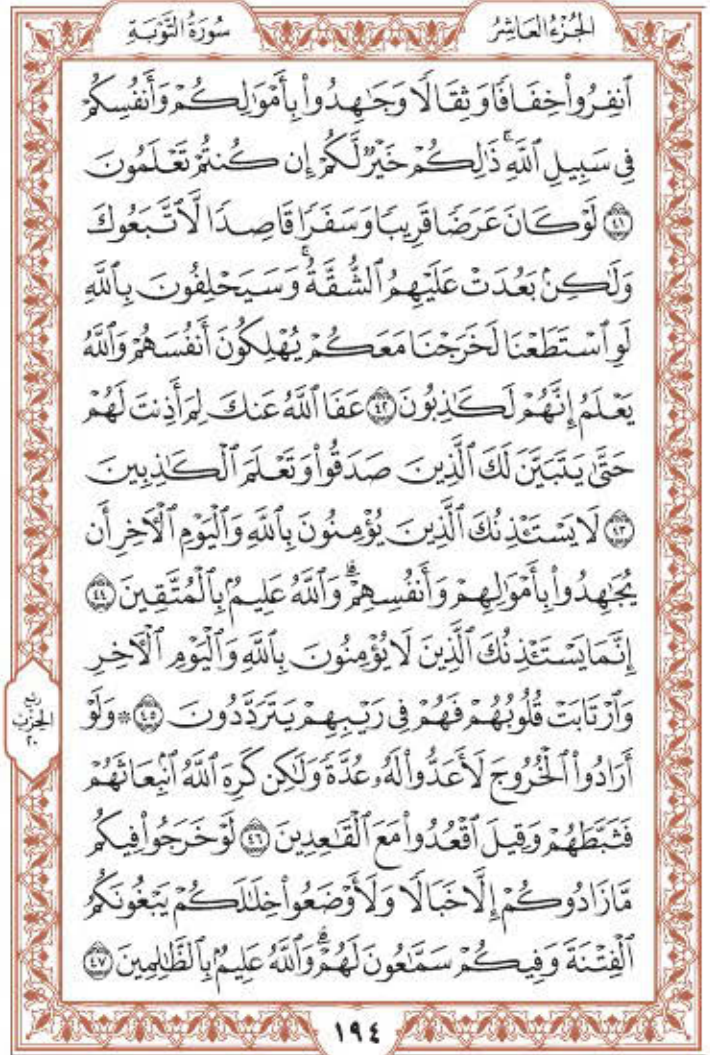 الجُزْءُ العَاشِرُ
سُورَةُ التَّوْبَةِ
ٱنفِرُوا۟ خِفَافًا وَثِقَالًا وَجَٰهِدُوا۟ بِأَمْوَٰلِكُمْ وَأَنفُسِكُمْ
فِى سَبِيلِ ٱللَّهِ ۚ ذَٰلِكُمْ خَيْرٌ لَّكُمْ إِن كُنتُمْ تَعْلَمُونَ
٤١ لَوْ كَانَ عَرَضًا قَرِيبًا وَسَفَرًا قَاصِدًا لَّٱتَّبَعُوكَ
وَلَٰكِنۢ بَعُدَتْ عَلَيْهِمُ ٱلشُّقَّةُ ۚ وَسَيَحْلِفُونَ بِٱللَّهِ
لَوِ ٱسْتَطَعْنَا لَخَرَجْنَا مَعَكُمْ يُهْلِكُونَ أَنفُسَهُمْ وَٱللَّهُ
يَعْلَمُ إِنَّهُمْ لَكَٰذِبُونَ ٤٢ عَفَا ٱللَّهُ عَنكَ لِمَ أَذِنتَ لَهُمْ
حَتَّىٰ يَتَبَيَّنَ لَكَ ٱلَّذِينَ صَدَقُوا۟ وَتَعْلَمَ ٱلْكَٰذِبِينَ
٤٣ لَا يَسْتَـْٔذِنُكَ ٱلَّذِينَ يُؤْمِنُونَ بِٱللَّهِ وَٱلْيَوْمِ ٱلْـَٔاخِرِ أَن
يُجَٰهِدُوا۟ بِأَمْوَٰلِهِمْ وَأَنفُسِهِمْ ۗ وَٱللَّهُ عَلِيمٌۢ بِٱلْمُتَّقِينَ ٤٤
إِنَّمَا يَسْتَـْٔذِنُكَ ٱلَّذِينَ لَا يُؤْمِنُونَ بِٱللَّهِ وَٱلْيَوْمِ ٱلْـَٔاخِرِ
وَٱرْتَابَتْ قُلُوبُهُمْ فَهُمْ فِى رَيْبِهِمْ يَتَرَدَّدُونَ ٤٥ ۞ وَلَوْ
رُبع
الحِزْب
٢٠
أَرَادُوا۟ ٱلْخُرُوجَ لَأَعَدُّوا۟ لَهُۥ عُدَّةً وَلَٰكِن كَرِهَ ٱللَّهُ ٱنۢبِعَاثَهُمْ
فَثَبَّطَهُمْ وَقِيلَ ٱقْعُدُوا۟ مَعَ ٱلْقَٰعِدِينَ ٤٦ لَوْ خَرَجُوا۟ فِيكُم
مَّا زَادُوكُمْ إِلَّا خَبَالًا وَلَأَوْضَعُوا۟ خِلَٰلَكُمْ يَبْغُونَكُمُ
ٱلْفِتْنَةَ وَفِيكُمْ سَمَّٰعُونَ لَهُمْ ۗ وَٱللَّهُ عَلِيمٌۢ بِٱلظَّٰلِمِينَ ٤٧
١٩٤